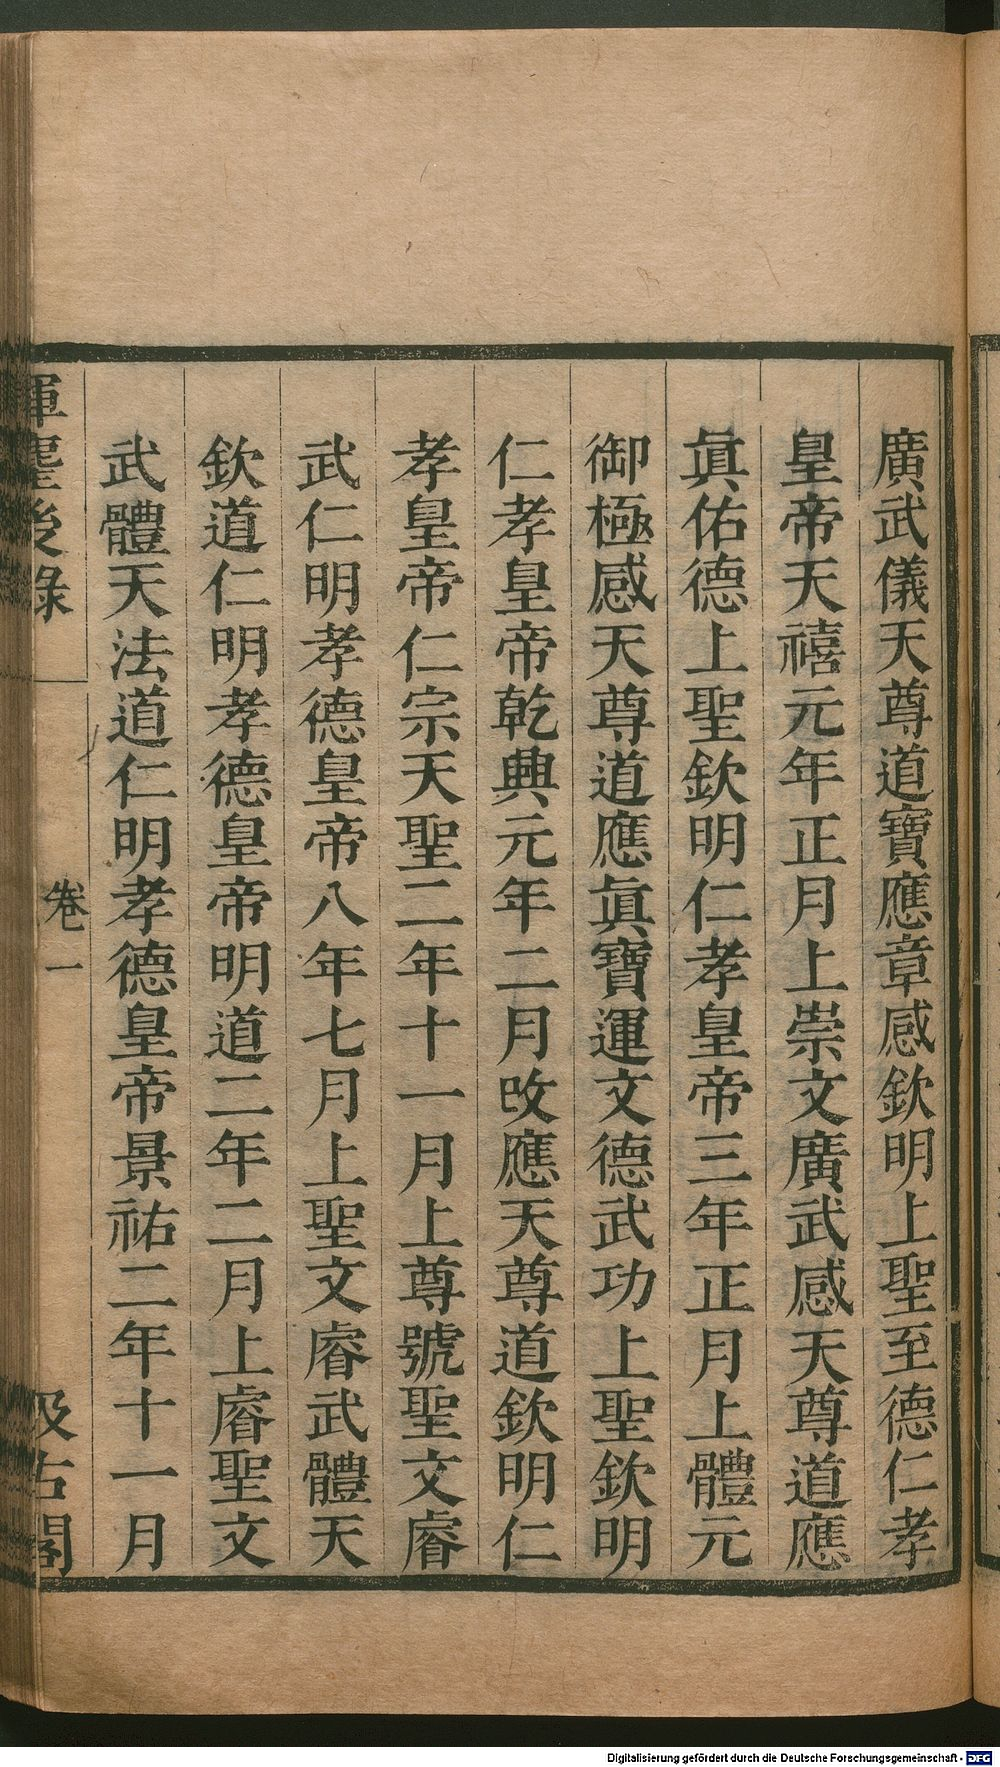 廣武儀天尊道寶應章感欽明上聖至德仁孝
皇帝天禧元年正月上崇文廣武感天尊道應
眞佑德上聖欽明仁孝皇帝三年正月上體元
御極感天尊道應眞寶運文德武功上聖欽明
仁孝皇帝乾興元年二月改應天尊道欽明仁
孝皇帝仁宗天聖二年十一月上尊號聖文睿
武仁明孝德皇帝八年七月上聖文睿武體天
欽道仁明孝德皇帝明道二年二月上睿聖文
武體天法道仁明孝德皇帝景祐二年十一月
揮麈後錄
卷一
汲古閣
Digitalisierung gefördert durch die Deutsche Forschungsgemeinschaft - DFG